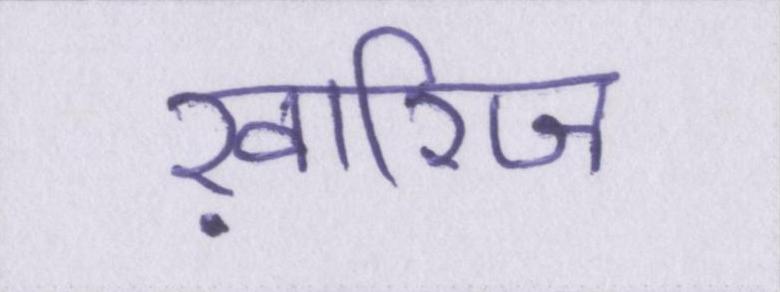 ख़ारिज